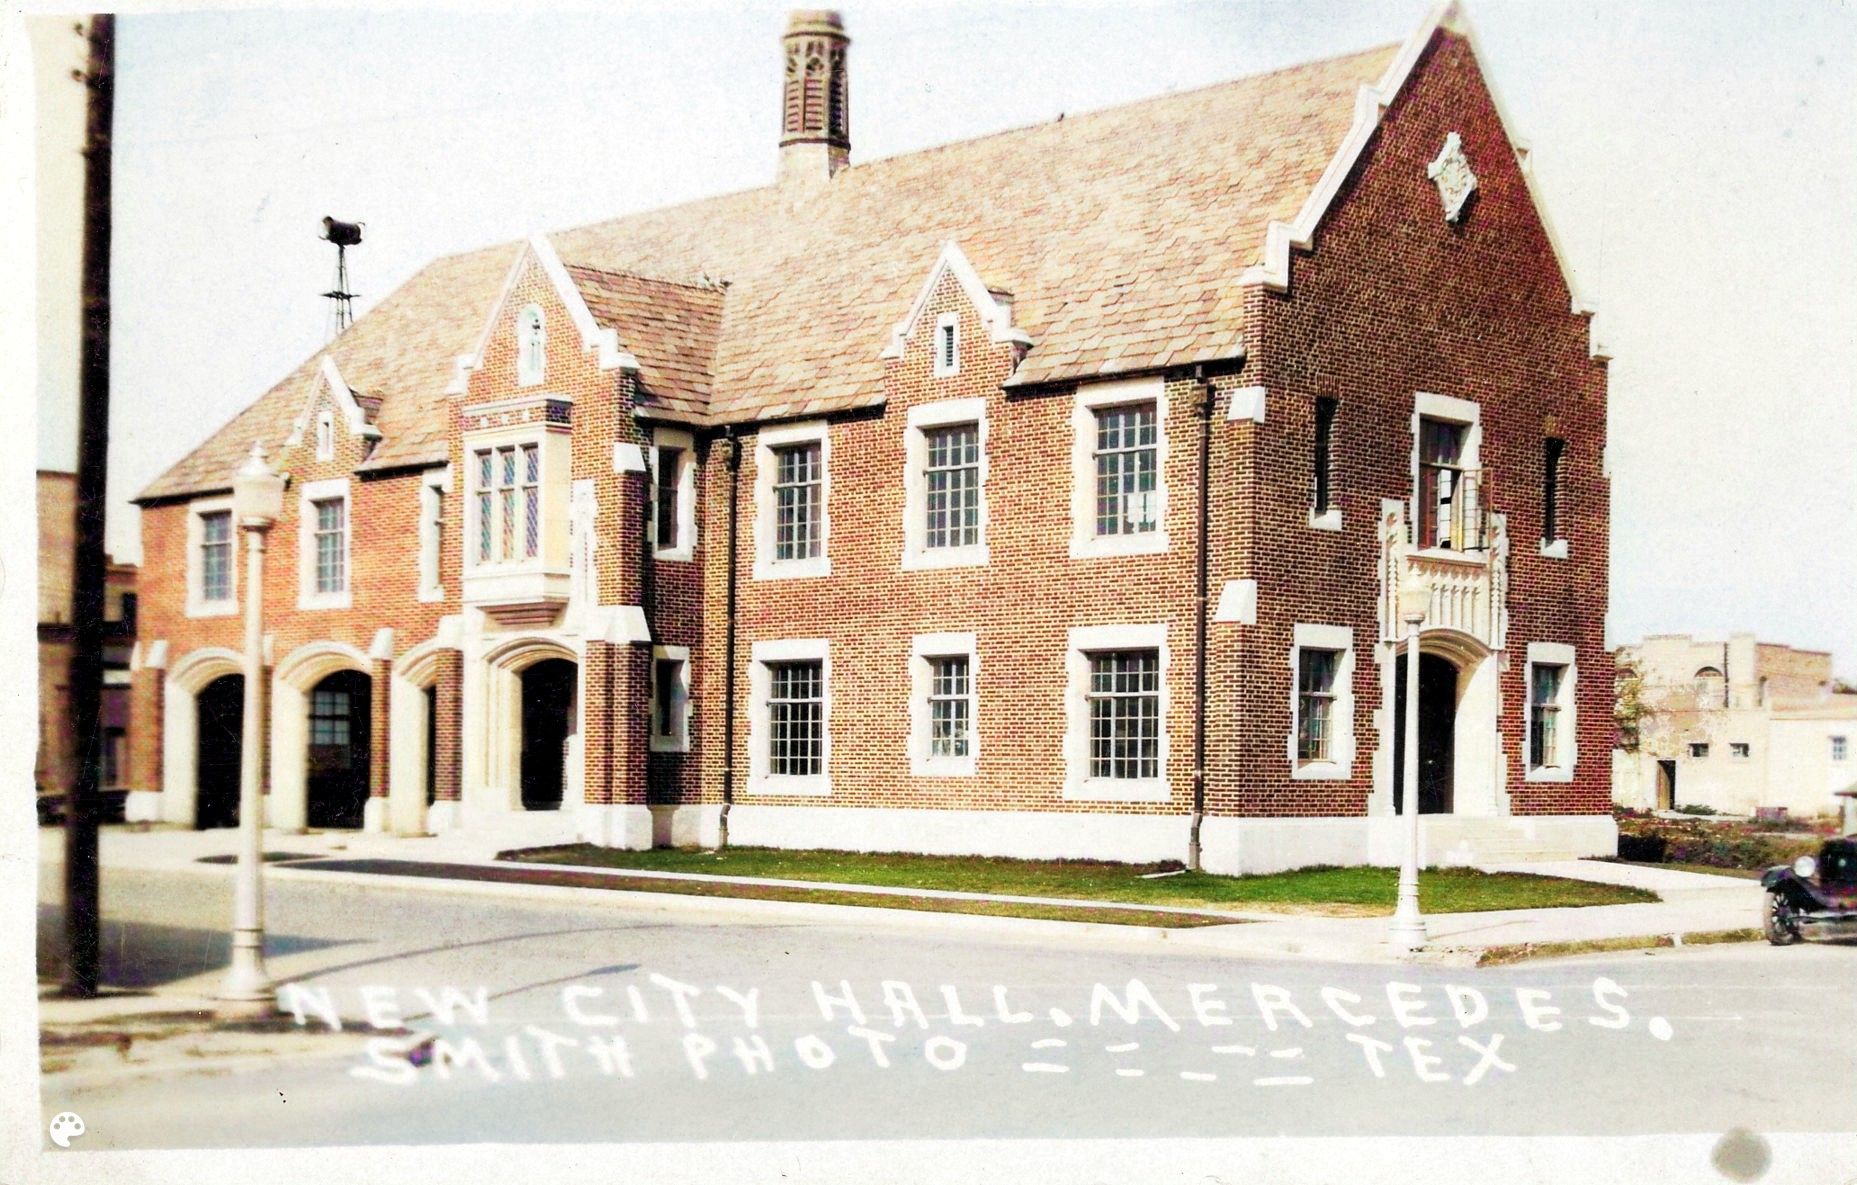 NEW CITY HALL. MERCEDES.
SMITH PHOTO = = = = TEX